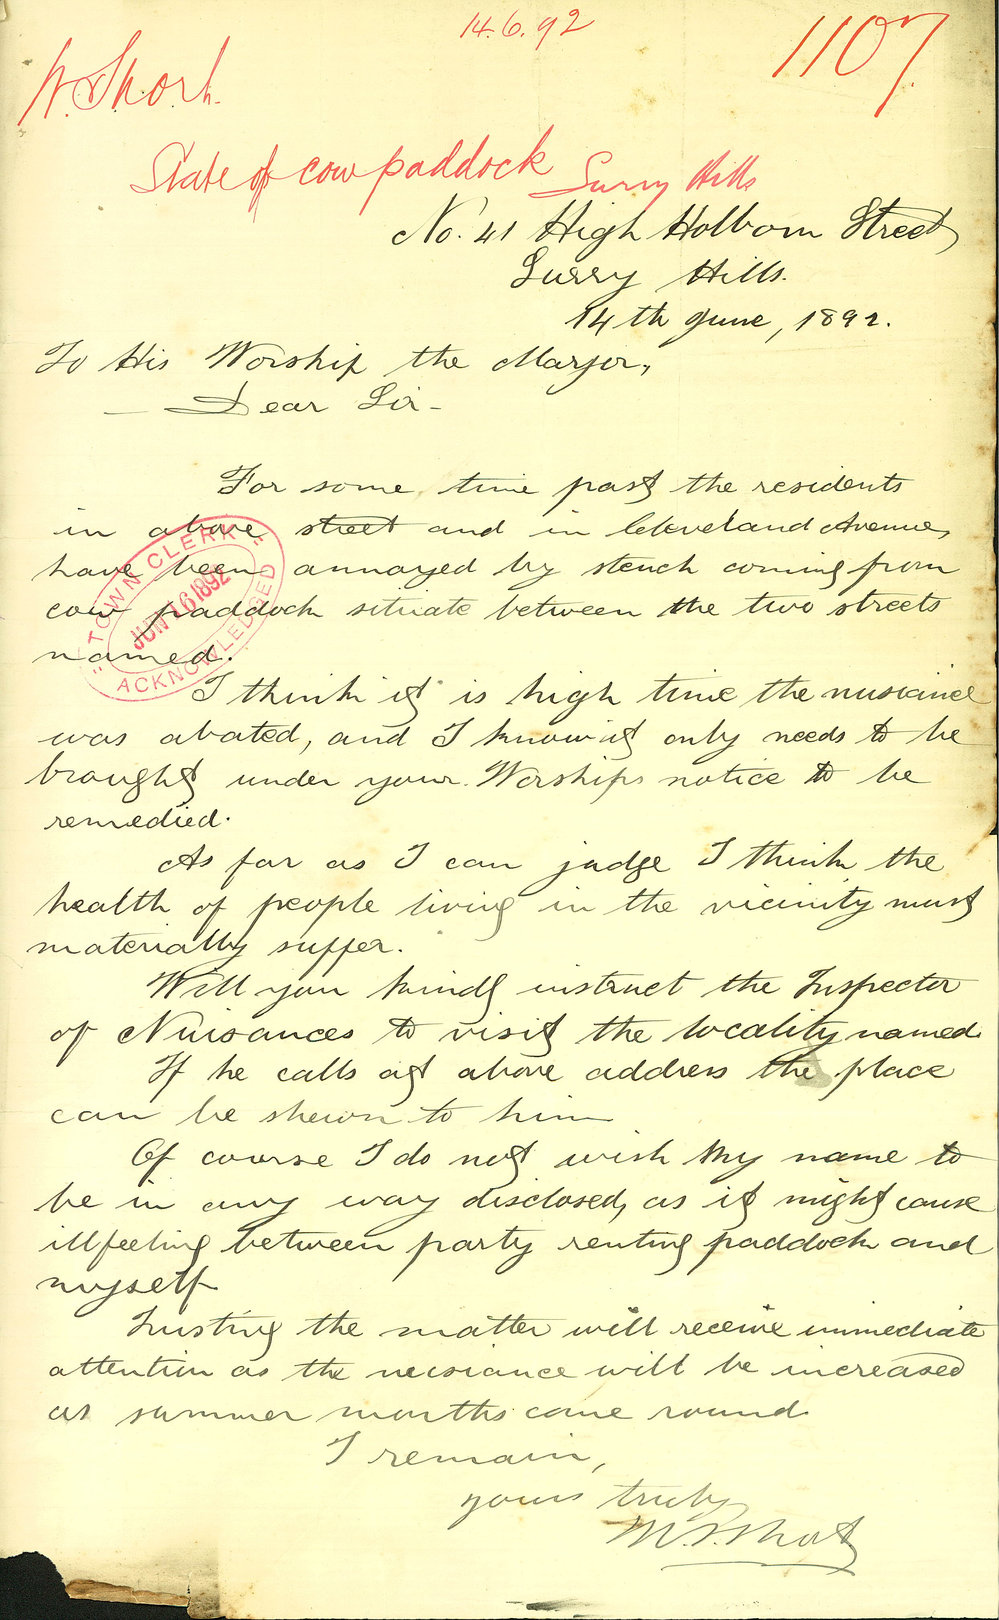 14.6.92
1107
W. Short.
State of cow paddock Surry Hills
No. 41 High Holborn Street,
Surry Hills.
14th June, 1892.
To His Worship the Mayor,
Dear Sir-
For some time past the residents
in above street and in Cleveland Avenue,
have been annoyed by stench coming from
cow paddock situate between the two streets
named.
"TOWN CLERK"
JUN 16 1892
ACKNOWLEDGED
I think it is high time the nusiance
was abated, and I know it only needs to be
brought under your Worships notice to be
remedied.
As far as I can judge I think the
health of people living in the vicinity must
materially suffer.
Will you kindly instruct the Inspector
of Nuisances to visit the locality named.
If he calls at above address the place
can be shewn to him
Of course I do not wish my name to
be in any way disclosed, as it might cause
illfeeling between party renting paddock and
myself
Trusting the matter will receive immediate
attention as the nusiance will be increased
as summer months come round.
I remain,
yours truly
Short